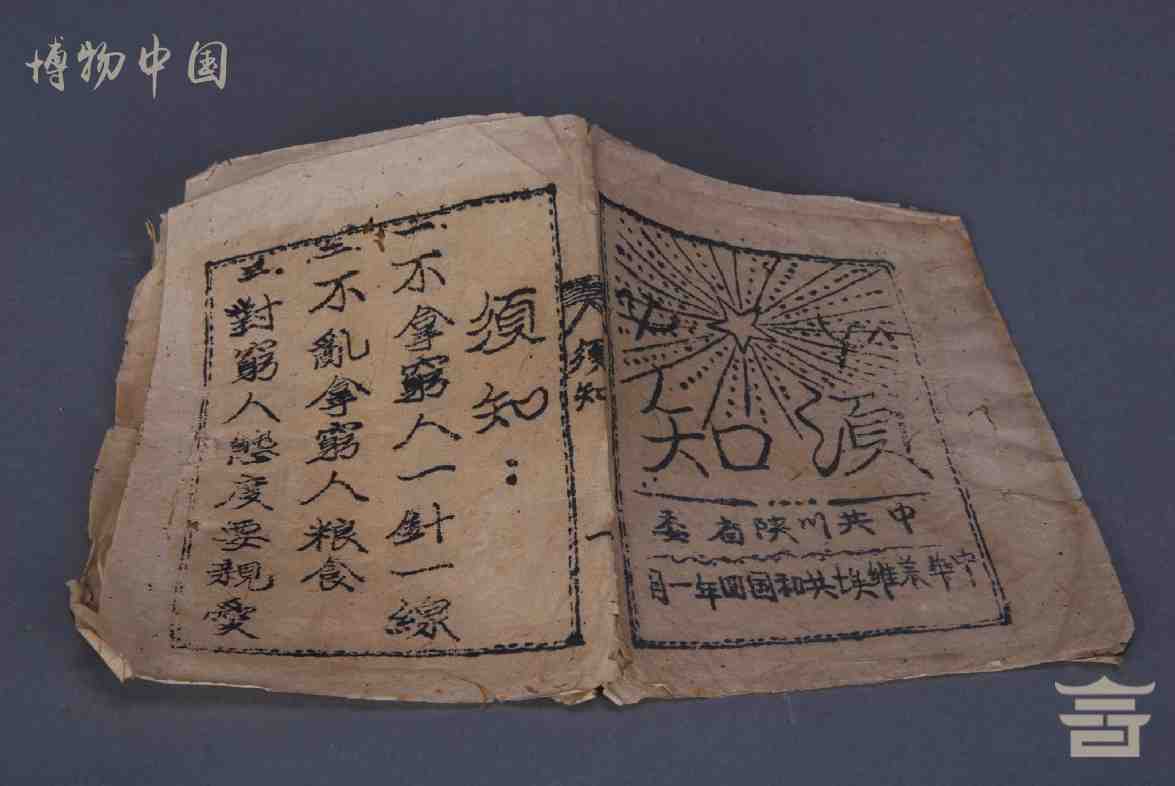 博物中国
須知
中共川陕省委
中華蘇維埃共和国四年一月
須知
一
須知：
一.不拿窮人一針一線
二.不亂拿窮人粮食
三.對窮人態度要親愛